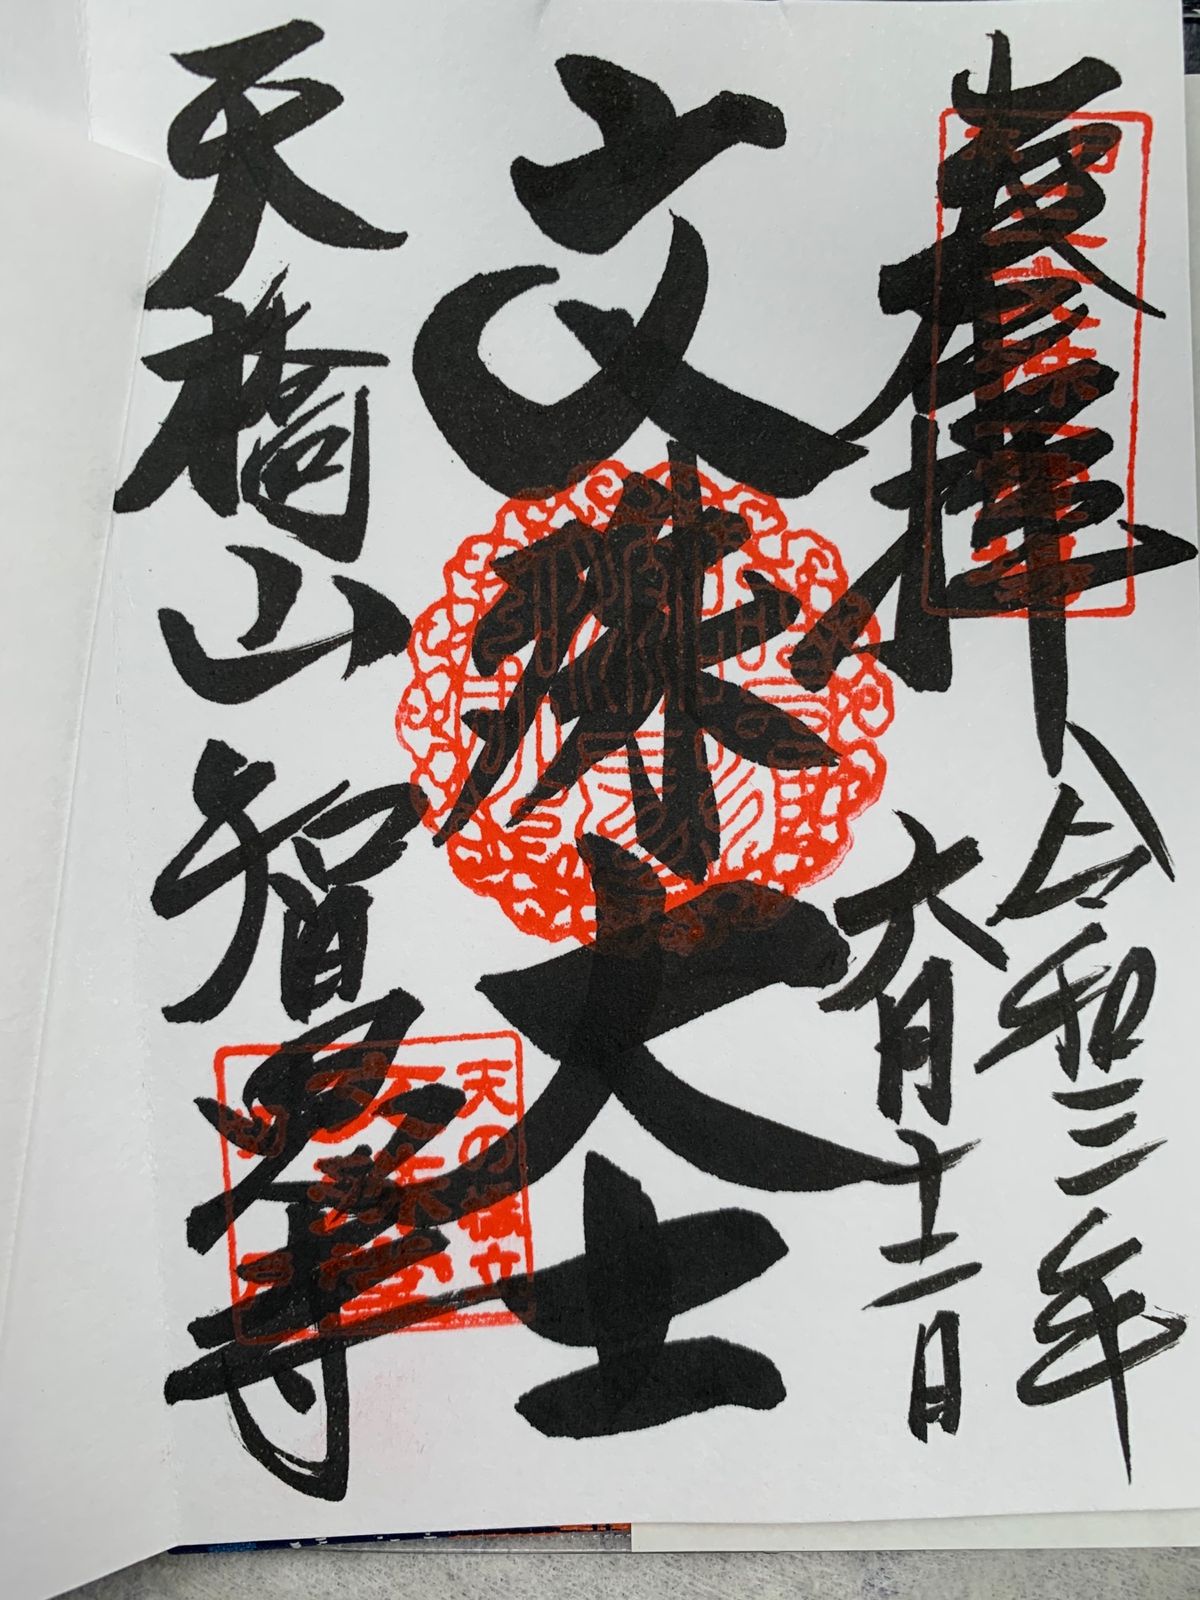 奉拝
令和三年
六月十二日
文殊大士
天橋山智恩寺
天の橋立
文殊堂